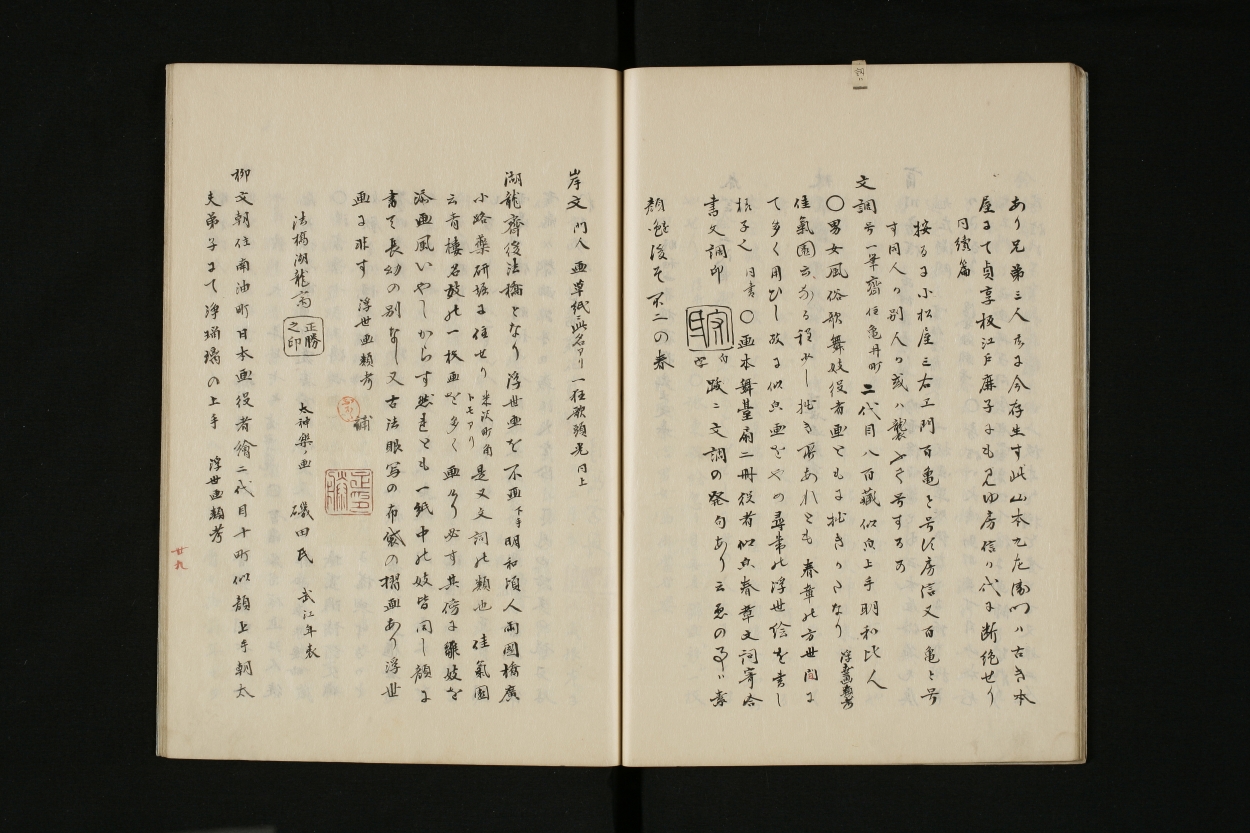 あり兄弟三人共に今存生す此山本九左衛門ハ古き本
屋にて貞享板江戸鹿子にも見ゆ房信の代に断絶せり
同続篇
按るに小松屋三右エ門百亀と号す房信又百亀と号
す同人か別人か或ハ襲て号するか
文調 号一筆齋 住亀井町 二代目八百蔵似貞上手明和比人
〇男女風俗歌舞妓役者画ともに拙きかたなり 浮世画類考
佳氣園云ある程少し拙き所あれとも春章の方世間に
て多く用ひし故に似貞画をやめ尋常の浮世絵を書し
〇画本舞臺扇二冊役者似貞春章文調寄合
書文調印 跋ニ文調の発句あり云
顔
岸文 門人 画草紙ニ此名アリ 一狂歌頭光 同上
湖龍齋後法橋となり浮世画を不画 下手 明和頃人両国橋廣
小路薬研堀に住せり 米沢町角トモアリ 是又文調の類也 佳氣園
云青楼名放の一枚画を多く画けり必す其傍に雛妓を
添画風いやしからす然れとも一紙中の妓皆同し顔に
書て長幼の別なし又古法眼写の布袋の摺画あり浮世
画に非す 浮世画類考 補
法橋湖龍齋 正勝之印 太神楽ノ画 磯田氏 武江年表
柳文朝住南油町日本画役者繪二代目十町似顔上手朝太
夫弟子にて浄瑠璃の上手 浮世画類考
廿九